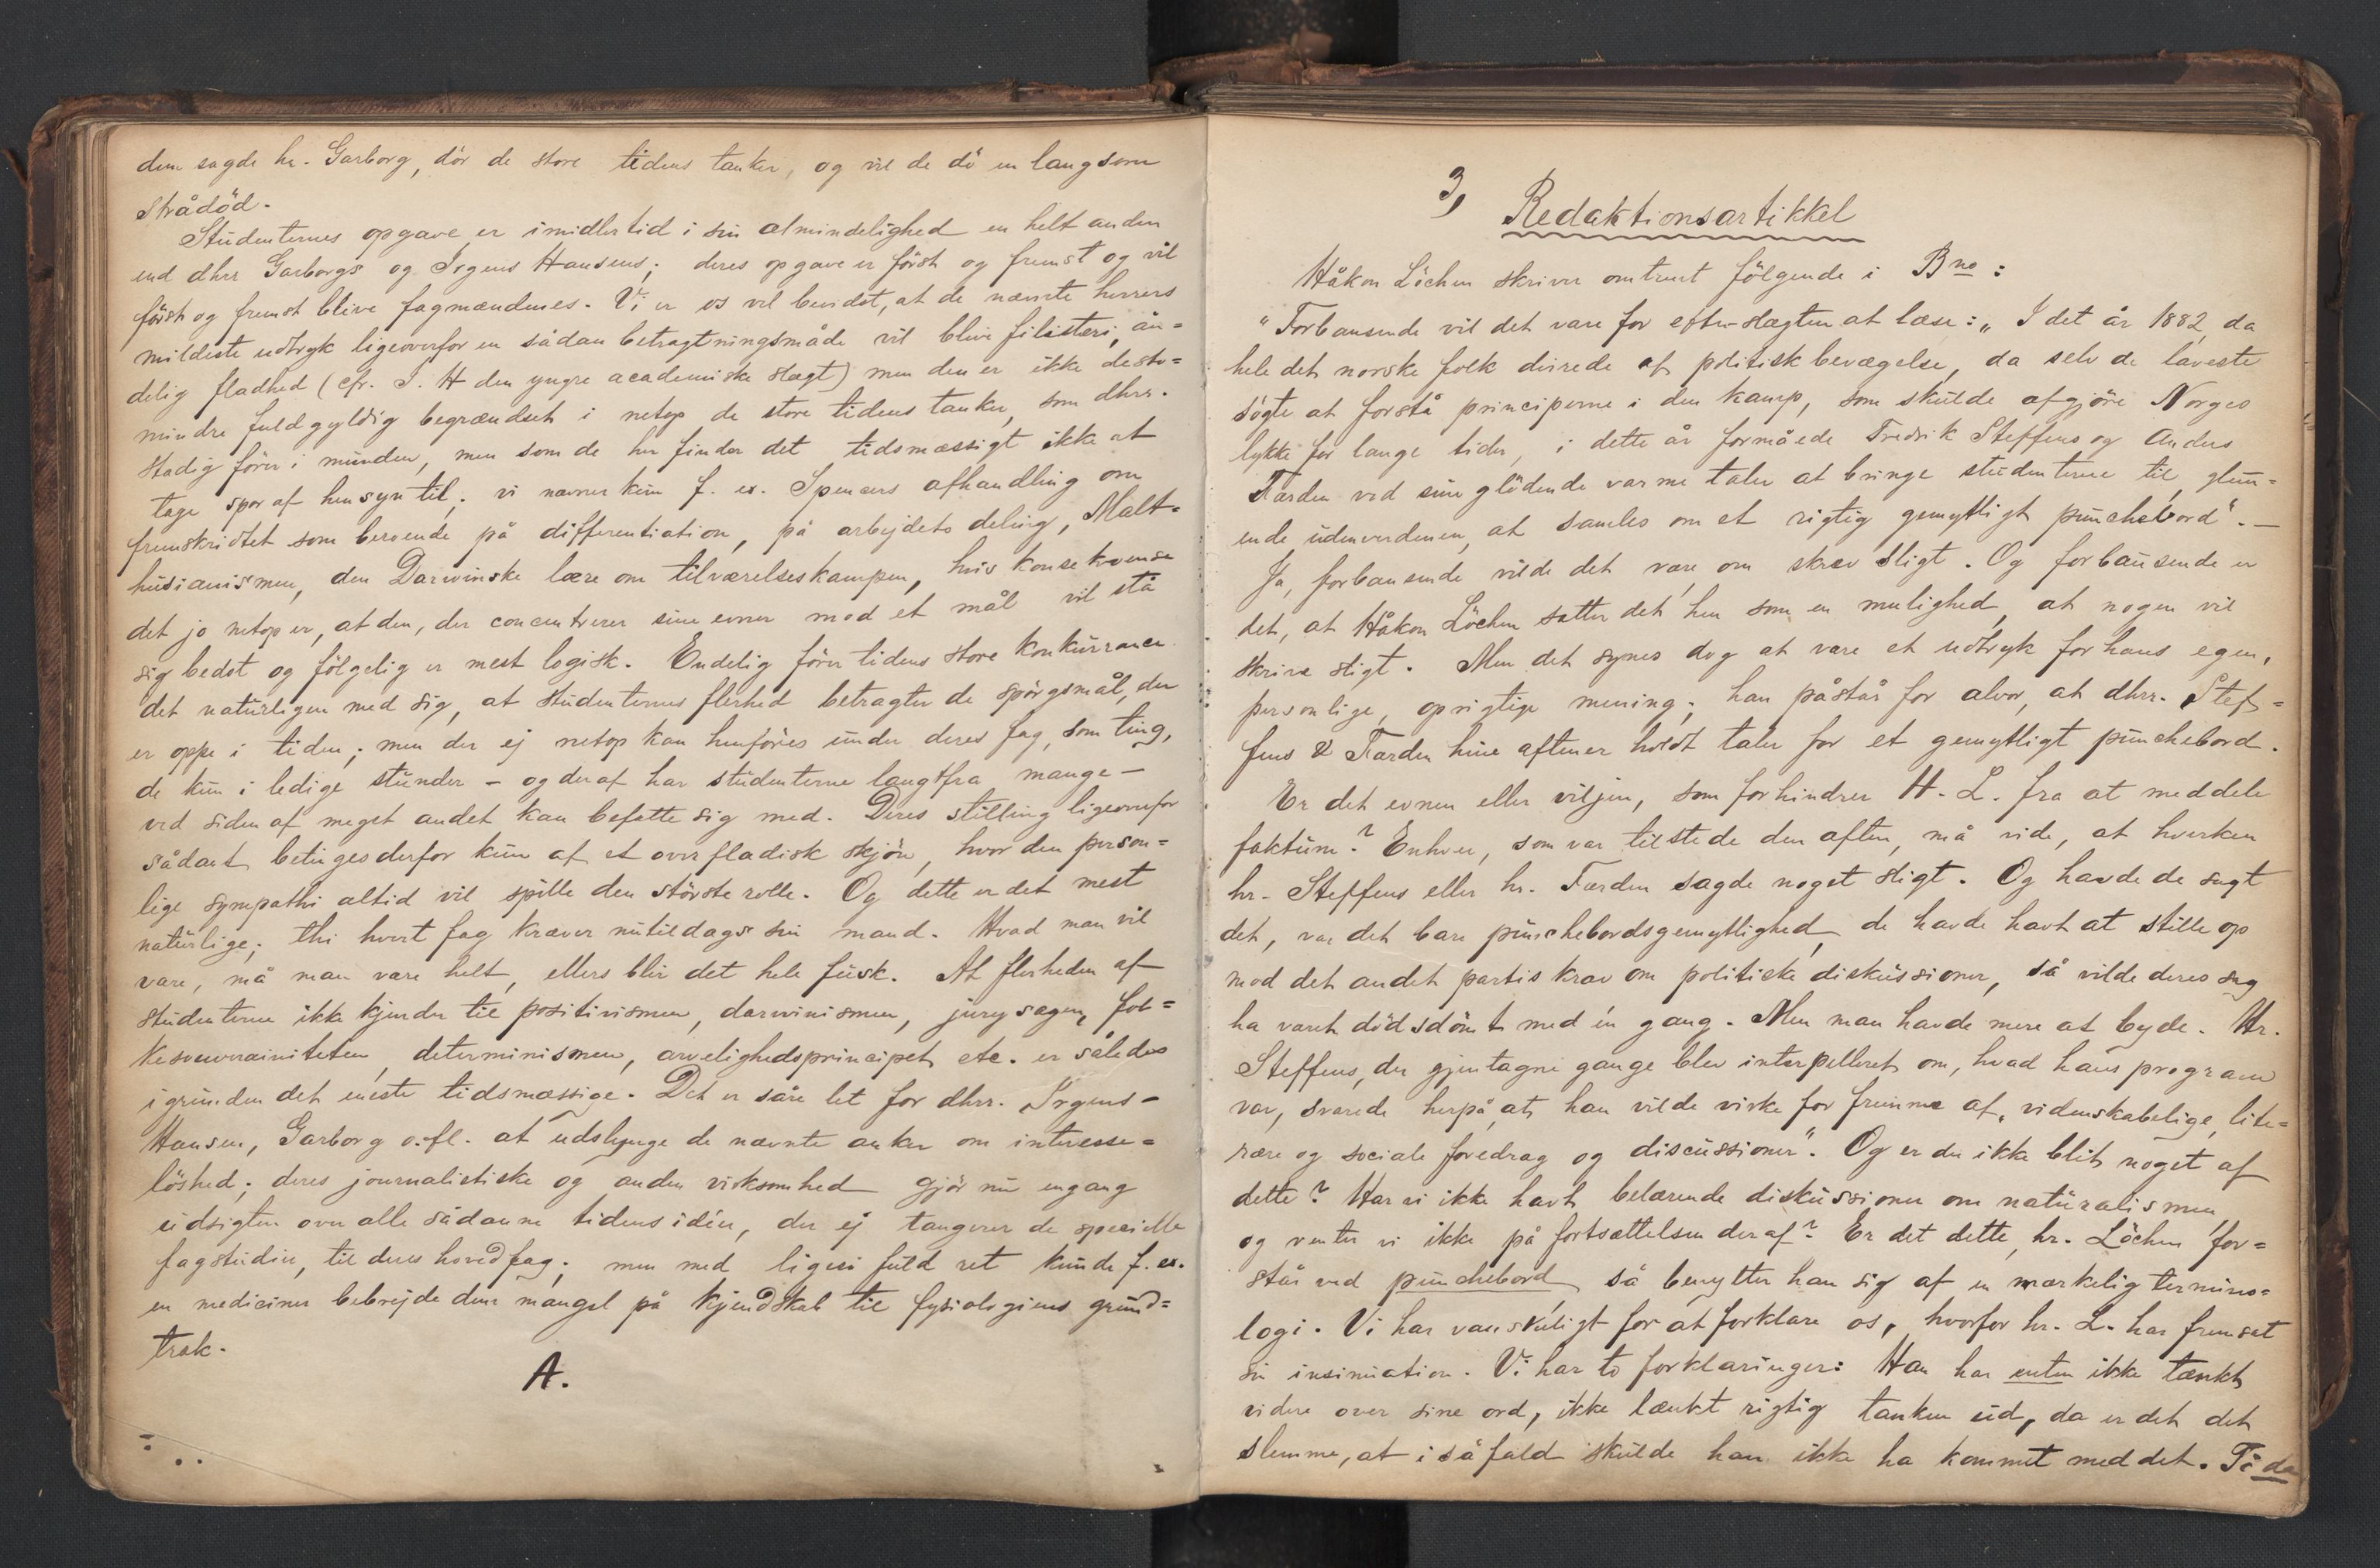 dem sagde hr. Garborg, dör de store tidens tanker, og vil de dö en langsom
strådöd.
Studenternes opgave er imidlertid i sin almindelighed en helt anden
end dhrr Garborgs og Irgens Hansens; deres opgave er först og fremst og vil
först og fremst blive fagmændenes. Vi er os vel bevidst, at de nævnte herrers
mildeste udtryk ligeoverfor en sådan betragtningsmåde vil blive filisteri, ån=
delig fladhed (cfr. I. H den yngre academiske slægt) men den er ikke desto=
mindre fuldgyldig begrændset i netop de store tidens tanker, som dhrr.
stadig förer i munden, men som de her finder det tidsmæssigt ikke at
tage spor af hensyn til; vi nævner kun f. ex. Spencers afhandling om
fremskridtet som beroende på differentiation, på arbejdets deling, Malt=
husianismen, den Darwinske lære om tilværelseskampen, hvis konsekvense
det jo netop er, at den, der concentrerer sine evner mod et mål vil stå
sig bedst og fölgelig er mest logisk. Endelig förer tidens store konkurrance
det naturligen med sig, at studenternes flerhed betragter de spörgsmål, der
er oppe i tiden; men der ej netop kan henföres under deres fag, som ting,
de kun i ledige stunder – og deraf har studenterne langtfra mange –
ved siden af meget andet kan befatte sig med. Deres stilling ligeoverfor
sådant betinges derfor kun af et overfladisk skjön, hvor den person=
lige sympathi altid vil spille den störste rolle. Og dette er det mest
naturlige; thi hvert fag kræver nutildags sin mand. Hvad man vil
være, må man være helt, ellers blir det hele fusk. At flerheden af
studenterne ikke kjender til positivismen, darwinismen, jurysagen, fol=
kesouverainiteten, determinismen, arvelighedsprincipet etc. er således
igrunden det eneste tidsmæssige. Det er såre let for dhrr. Irgens-
Hansen, Garborg o.fl. at udslynge de nævnte anker om interesse=
löshed; deres journalistiske og anden virksomhed gjör nu engang
udsigten over alle sådanne tidens idéer, der ej tangerer de specielle
fagstudier, til deres hovedfag; men med ligeså fuld ret kunde f. ex.
en mediciner bebrejde dem mangel på kjendskab til fysiologiens grund=
træk.
A.
3, Redaktionsartikkel
Håkon Löchen skriver omtrent fölgende i B no:
"Forbausende vil det være for efter-slægten at læse: "I det år 1882, da
hele det norske folk dirrede af politisk bevægelse, da selv de laveste
sögte at forstå principerne i den kamp, som skulde afgjöre Norges
lykke for lange tider, i dette år formåede Fredrik Steffens og Anders
Færden ved sine glödende varme taler at bringe studenterne til, glem=
ende udenverdenen, at samles om et rigtig gemytligt punchebord". –
Ja, forbausende vilde det være, om skrev sligt. Og forbausende er
det, at Håkon Löchen sætter det hen som en mulighed, at nogen vil
skrive sligt. Men det synes dog at være et udtryk for hans egen,
personlige, oprigtige mening; han påstår for alvor, at dhrr. Stef=
fens & Færden hine aftener holdt taler for et gemytligt punchebord.
Er det evnen eller viljen, som forhindrer H. L. fra at meddele
faktum? Enhver, som var tilstede den aften, må vide, at hverken
hr. Steffens eller hr. Færden sagde noget sligt. Og havde de sagt
det, var det bare punchebordsgemytlighed, de havde havt at stille op
mod det andet partis krav om politiske diskussioner, så vilde deres sag
ha været dödsdömt med én gang. Men man havde mere at byde. Hr.
Steffens, der gjentagne gange blev interpelleret om, hvad hans program
var, svarede herpå, at han vilde virke for fremme af "videnskabelige, lite=
rære og sociale foredrag og discussioner". Og er der ikke blit noget af
dette? Har vi ikke havt belærende diskussioner om naturalismen,
og venter vi ikke på fortsættelsen deraf? Er det dette, hr. Löchen for=
står ved punchebord, så benytter han sig af en mærkelig termino=
logi. Vi har vanskeligt for at forklare os, hvorfor hr. L. har fremsat
sin insinuation. Vi har to forklaringer: Han har enten ikke tænkt
videre over sine ord, ikke tænkt rigtig tanken ud, da er det det
slemme, at i så fald skulde han ikke ha kommet med det. Ti da